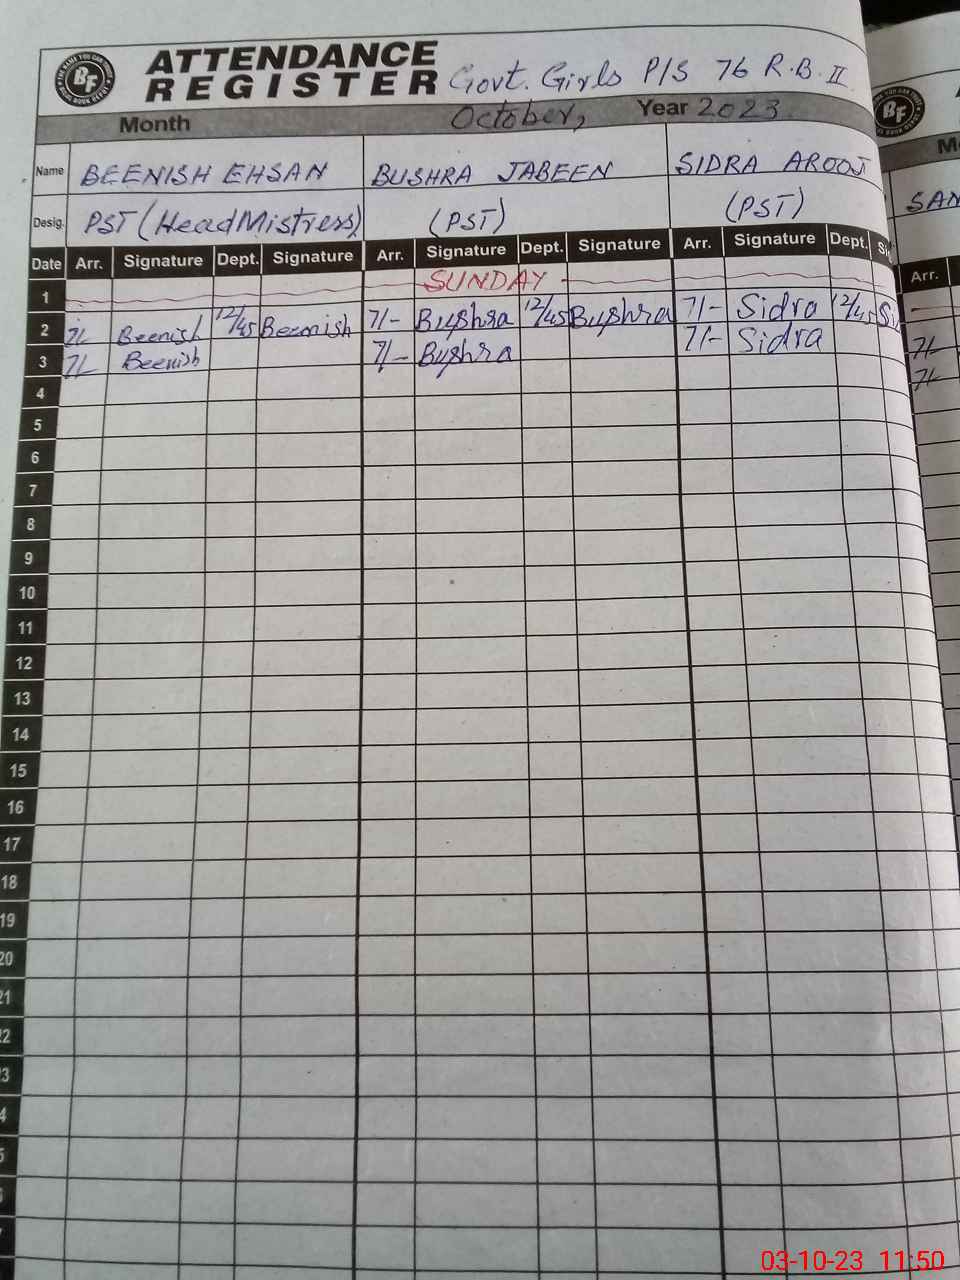 ATTENDANCE
REGISTER Govt. Girls P/S 76 R.B. II
Month October, Year 2023
Name BEENISH EHSAN BUSHRA JABEEN SIDRA AROOJ
Desig. PST (HeadMistress) (PST) (PST)
Date Arr. Signature Dept. Signature Arr. Signature Dept. Signature Arr. Signature Dept. Si
1 SUNDAY
2 7/- Beenish 12/45 Beenish 7/- Bushra 12/45 Bushra 7/- Sidra 12/45 Si
3 7/- Beenish 7/- Bushra 7/- Sidra
4
5
6
7
8
9
10
11
12
13
14
15
16
17
18
19
20
21
2
3
4
5
BF
BF
M
SAN
Arr.
7/-
7/-
03-10-23 11:50